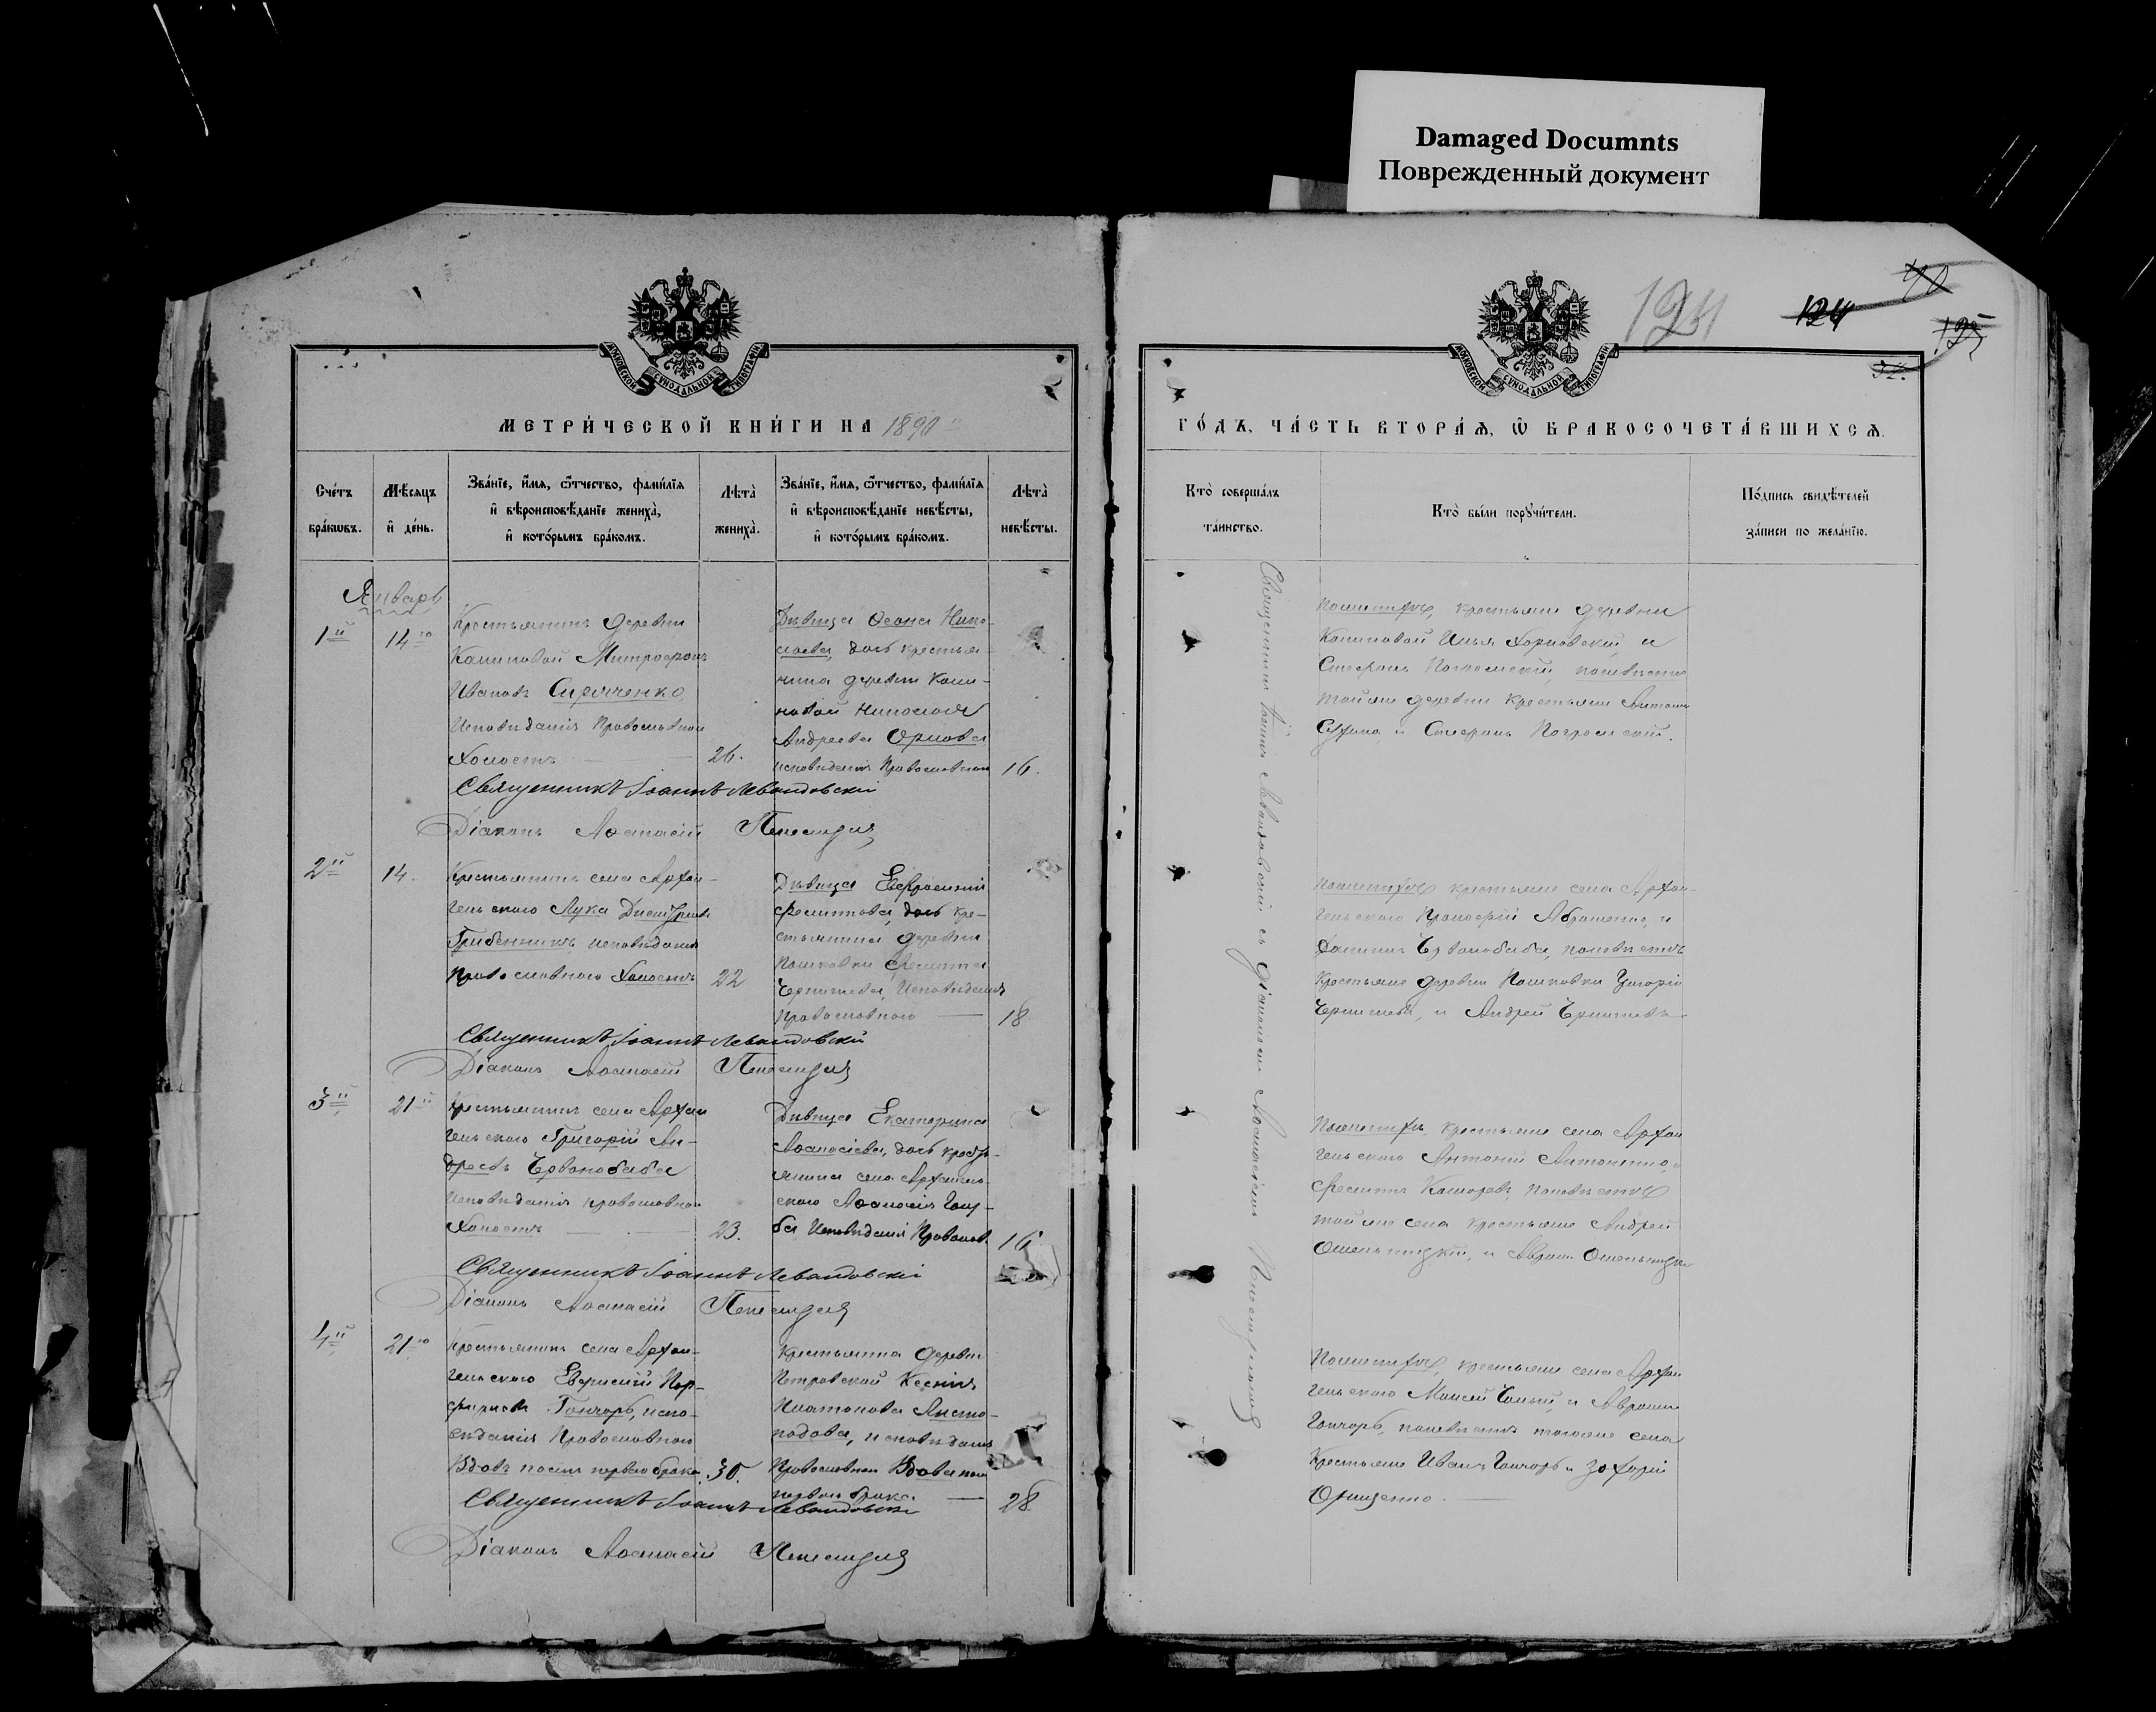 Damaged Documnts
Поврежденный документ
МОСКОВСКОЙ СѴНОДАЛЬНОЙ ТИПОГРАФІИ
МЕТРИ́ЧЕСКОЙ КНИ́ГИ НА 1890
Сче́тъ бра́кѡвъ.
Мѣ́сяцъ и҆ де́нь.
Зва́нїе, и҆́мя, ѻ҆́тчество, фами́лїя
и҆ вѣроисповѣ́данїе жениха̀,
и҆ кото́рымъ бра́комъ.
Лѣта̀ жениха̀.
Зва́нїе, и҆́мя, ѻ҆́тчество, фами́лїя
и҆ вѣроисповѣ́данїе невѣ́сты,
и҆ кото́рымъ бра́комъ.
Лѣта̀ невѣ́сты.
Январь
1й
14го
Крестьянинъ деревни
Калиновой Митрофанъ
Ивановъ
Исповѣданія Православнаго
Холостъ
26.
Дѣвица Ѳеона Нико-
лаева, дочь крестья-
нина деревни Кали-
новой Николая
Андреева Орлова
исповѣданія Православнаго
16.
Священникъ Іоаннъ Левандовскій
Діаконъ Аѳанасій
2й
14.
Крестьянинъ села Архан-
гельскаго Лука Дмитріевъ
Гребенникъ исповѣданія
Православнаго Холостъ
22
Дѣвица Евфросинія
Филиппова, дочь кре-
стьянина деревни
Пашковки Филиппа
Чернышева, Исповѣданія
Православнаго
18
Священникъ Іоаннъ Левандовскій
Діаконъ Аѳанасій
3й
21
Крестьянинъ села Архан
гельскаго Григорій Ан-
дреевъ Червонобаба
Исповѣданія православнаго
Холостъ
23.
Дѣвица Екатерина
Аѳанасіева, дочь кресть-
янина села Архангель-
скаго Аѳанасія Голу-
ба Исповѣданія Православ.
16
Священникъ Іоаннъ Левандовскій
Діаконъ Аѳанасій
4й
21го
Крестьянинъ села Архан-
гельскаго Евфимій Пор-
фирьевъ Гончаръ, испо-
вѣданія Православнаго
Вдовъ послѣ перваго брака
30.
Крестьянка деревни
Петровской Ксенія
Платонова
исповѣданія
Православнаго Вдова послѣ
перваго брака
28.
Священникъ Іоаннъ Левандовскій
Діаконъ Аѳанасій
124
124
40
125
МОСКОВСКОЙ СѴНОДАЛЬНОЙ ТИПОГРАФІИ
ГО́ДЪ, ЧА́СТЬ ВТОРА́Ѧ, Ѽ БРАКОСОЧЕТА́ВШИХСѦ.
Кто̀ соверша́лъ та́инство.
Кто̀ бы́ли порꙋчи́тели.
По́дпись свидѣ́телей за́писи по жела́нїю.
Священникъ Іоаннъ Левандовскій съ діакономъ Аѳанасіемъ
По женихѣ, крестьяне деревни
Калиновой Илья и
Стефанъ по невѣстѣ
той же деревни крестьяне Антонъ
и Стефанъ
По женихѣ крестьяне села Архан-
гельскаго Прокофій Абраменко, и
Червонобаба, по невѣстѣ
крестьяне деревни Пашковки Григорій
Чернышевъ, и Андрей Чернышевъ
По женихѣ, крестьяне села Архан
гельскаго Антоній Антоненко, и
Филиппъ по невѣстѣ
той же села крестьяне Андрей
Омельницкій, и Авраамъ
По женихѣ, крестьяне села Архан
гельскаго Моисей и Авраамъ
Гончаръ, по невѣстѣ того же села
Крестьяне Иванъ Гончаръ и Захарій
Онищенко.